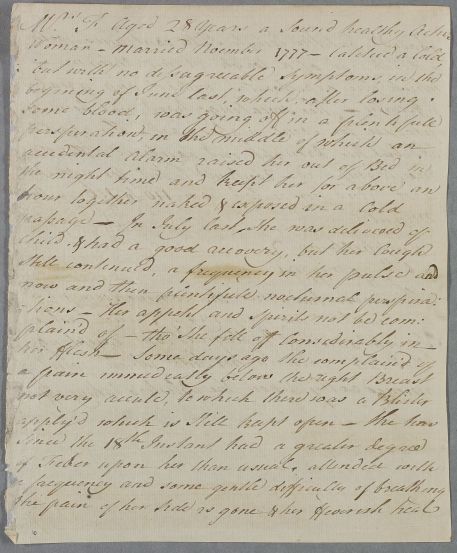 Mrs. F. Aged 28 Years a Sound healthy Active
Woman – married November 1777 – Catched a Cold,
but with no disagreeable Symptoms, in the
begining of June last, which, after losing
Some blood, was going off in a plentifull
perspiration, in the middle of which an
accidental Alarm raised her out of Bed in
the night time and kept her for above an
hour together naked & exposed in a Cold
passage – In July last She was delivered of
Child, & had a good recovery, but her Cough
Still continued, a frequency in her pulse and
now and then plentifull nocturnal perspira
tions – Her appetite and spirits not be com
plain'd of – tho' She fell off Considerably in
her flesh – Some days ago she complain'd of
a pain immediately below the right Breast
not very acute, to which there was a Blister
apply'd which is Still kept open – She has
Since the 18th Instant had a greater degree
of Fever upon her than usual, attended with
frequency and some gentle difficulty of breathing
the pain of her side is gone & her feverish heat